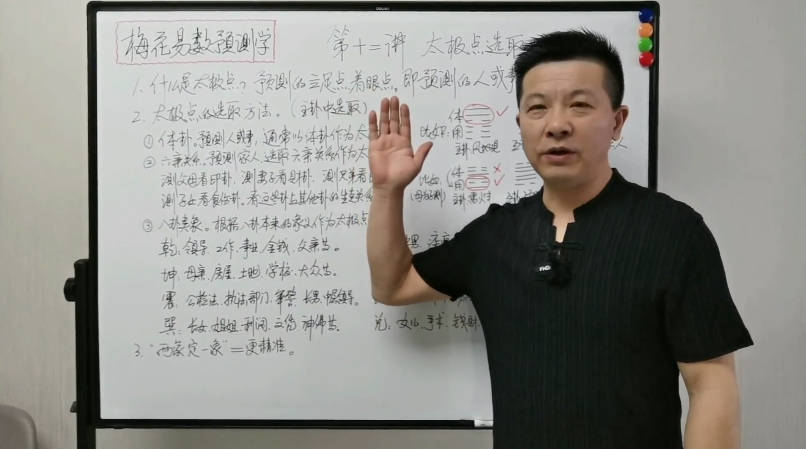 梅花易数预测学
第十二讲 太极点选取
1. 什么是太极点？预测的立足点、着眼点。即预测的人或事
2. 太极点的选取方法。（主卦中选取）
① 体卦。预测人或事，通常以体卦作为太
② 六亲关系。预测家人，选取六亲关系作为太
测父母看印卦，测妻子看财卦，测兄弟看
测子女看食伤卦。看这些卦与其他卦的生克关系
③ 八卦类象。根据八卦本来的象义作为太极点
乾：领导、工作、事业、金钱、父亲等。
坤：母亲、房屋、土地、学校、大众等。
震：公检法、执法部门、军警、长男
巽：长女、姐姐、利润、文傍、神佛等。
兑：文心、手术、钱财
3. “两象定一象”=更精准。
比如：
体
用
主卦
体
用
主卦雷火丰
人